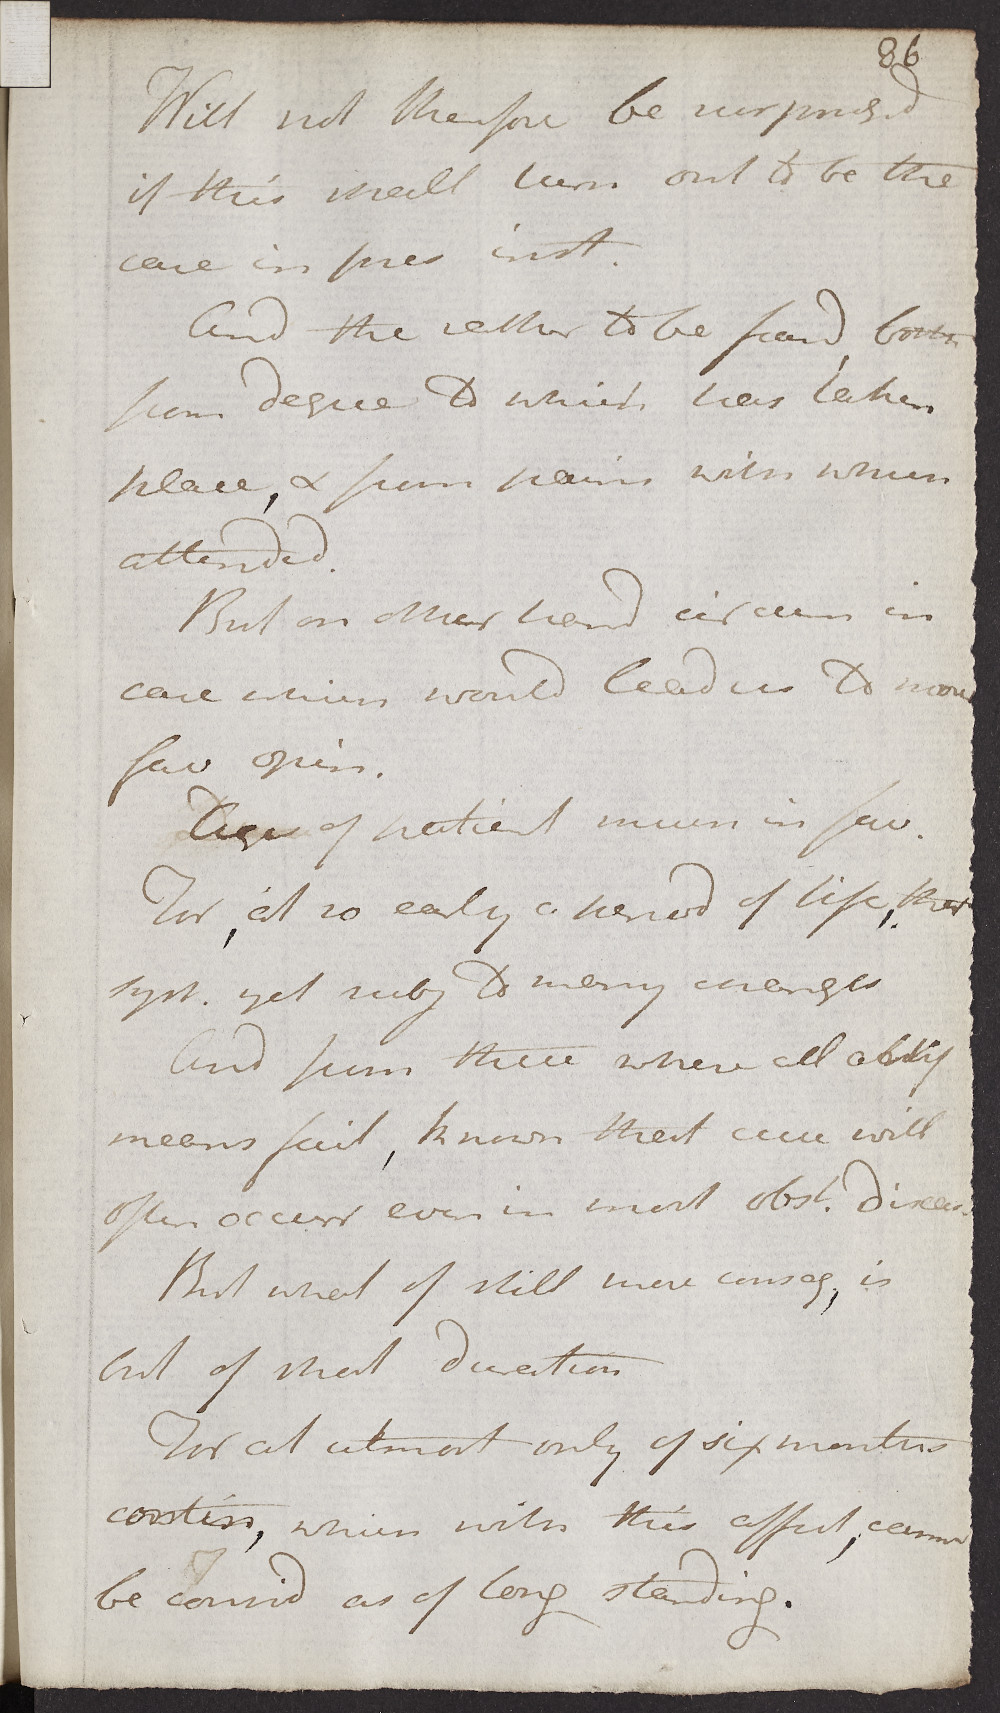 86
Will not therefore be surprised
if this shall turn out to be the
case in pres inst.
And the rather to be feard, both
from degree to which has taken
place, & from pains with which
attended.
But on other hand circum in
case which would lead us to more
fav opin.
Age of patient much in fav.
For, at so early a period of life, the
syst. yet subj to many changes
And from these where all
means fail, known that cure will
often occurr even in most obst. diseas.
But what of still more conseq, is
but of short duration
For at utmost only of six months
contin, which with this affect, cannot
be consid as of long standing.